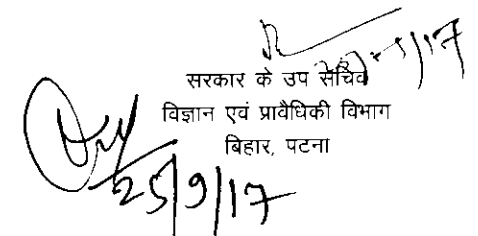 सरकार के उप सचिव
विज्ञान एवं प्रावैधिकी विभाग
बिहार, पटना
25/9/17